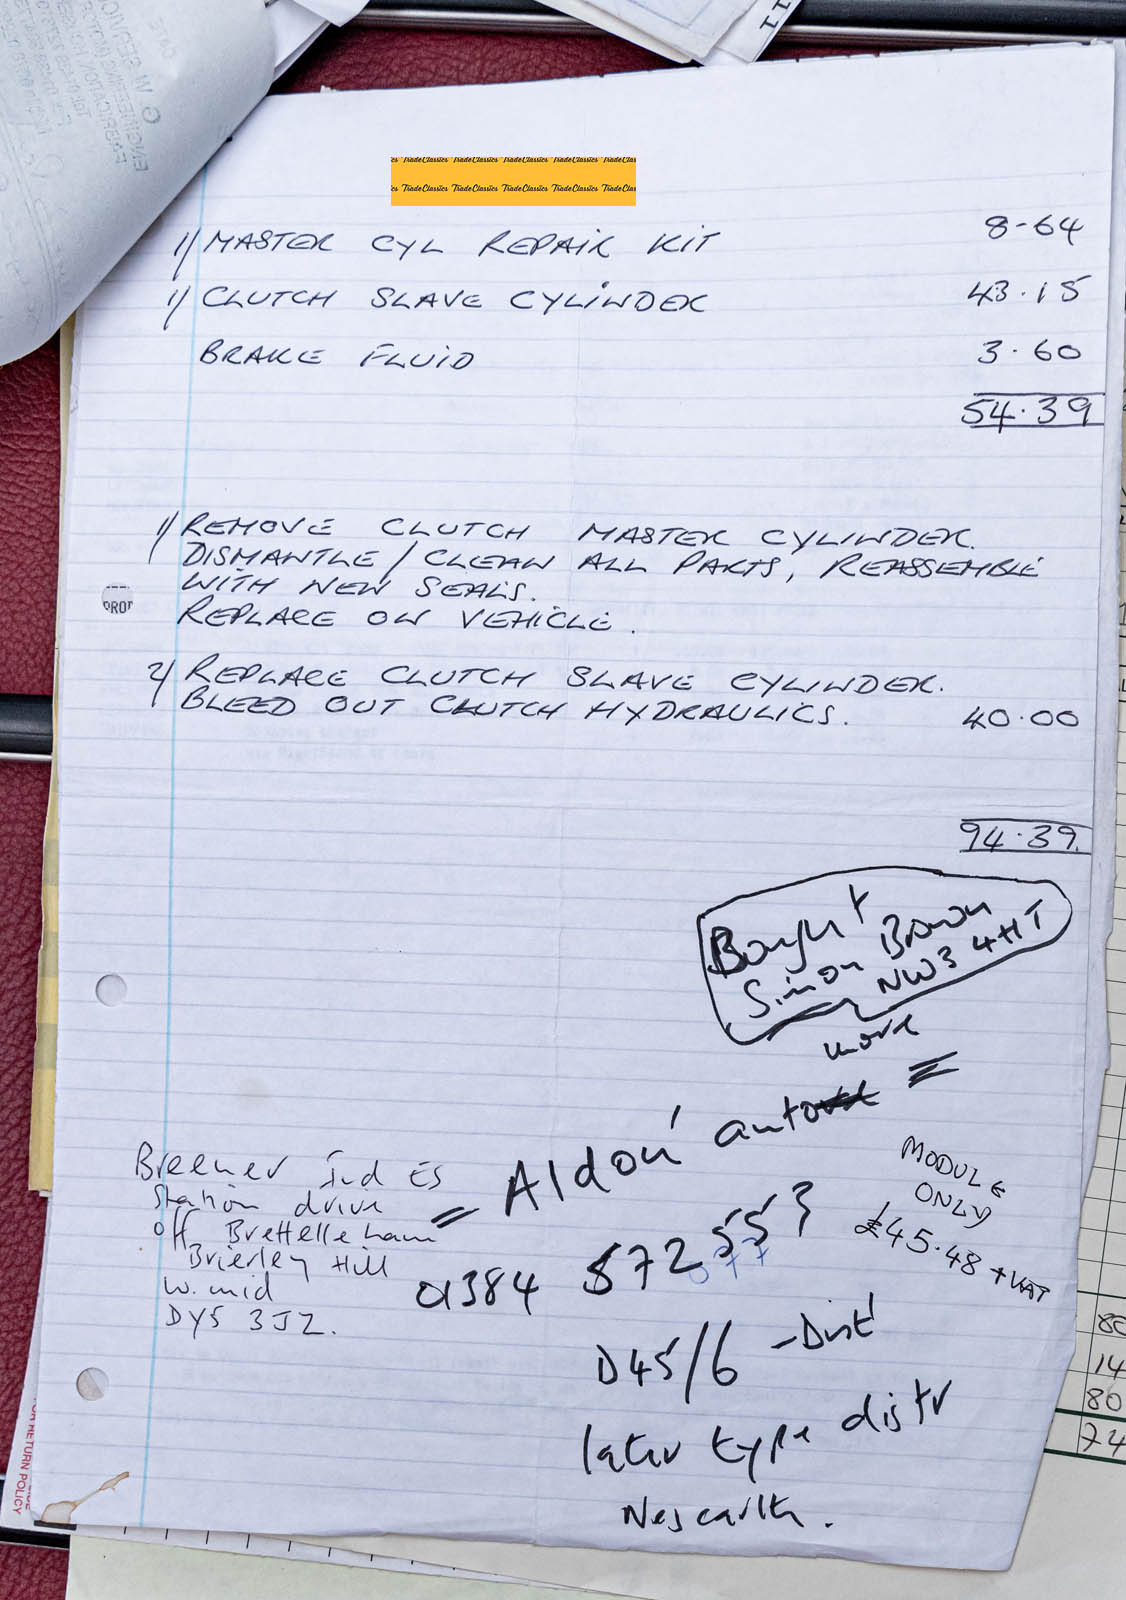 TradeClassics TradeClassics TradeClassics
TradeClassics TradeClassics TradeClassics
1/ MASTER CYL REPAIR KIT 8-64
1/ CLUTCH SLAVE CYLINDER 43.15
BRAKE FLUID 3.60
54.39
1/ REMOVE CLUTCH MASTER CYLINDER.
DISMANTLE / CLEAN ALL PARTS, REASSEMBLE
WITH NEW SEALS.
REPLACE ON VEHICLE.
2/ REPLACE CLUTCH SLAVE CYLINDER.
BLEED OUT CLUTCH HYDRAULICS. 40.00
94.39.
Bought
Simon Brown
NW3 4HT
more
Aldon' auto
MODULE
ONLY
£45.48 + VAT
Breener Ind Es
Station drive
off Brettelle
Brierley Hill
W. mid
DY5 3JZ.
01384 572 553
077
D45/6 - Dist'
later type distr
Neg earth.
RETURN POLICY
80
14
80
74